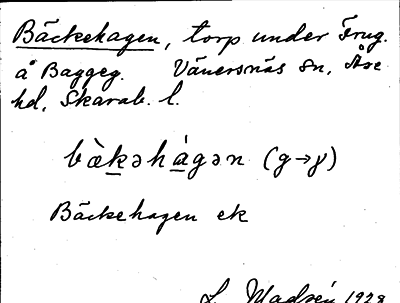 Bäckehagen, torp under Frug.
å Baggeg. Vänersnäs sn, Åse
hd, Skarab. l.
bæ̀kəhágən (g→γ)
Bäckehagen ek
L. Madsén 1928